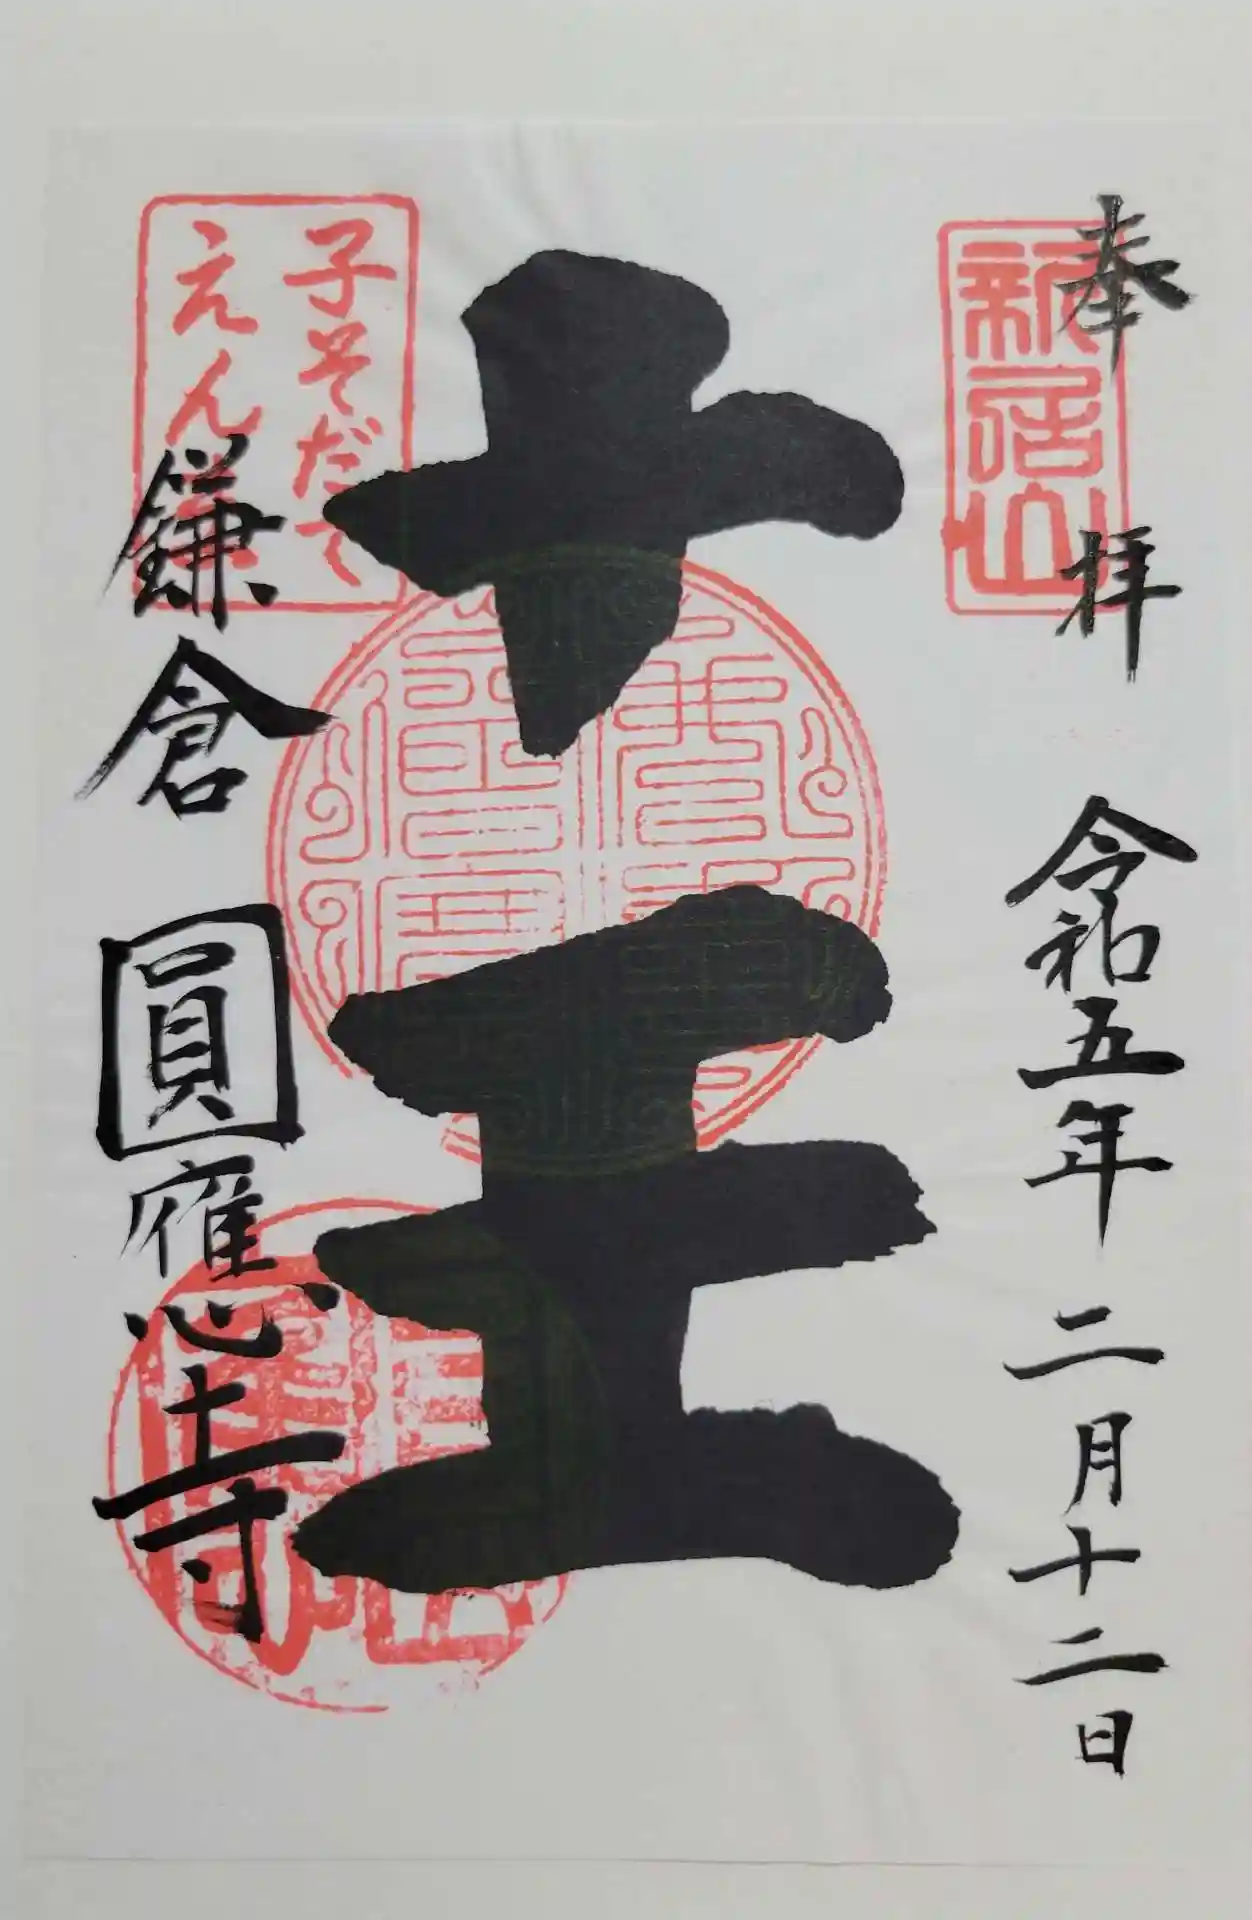 奉拝 令和五年 二月十二日
新居山
十王
子そだて
えん
鎌倉 圓應寺